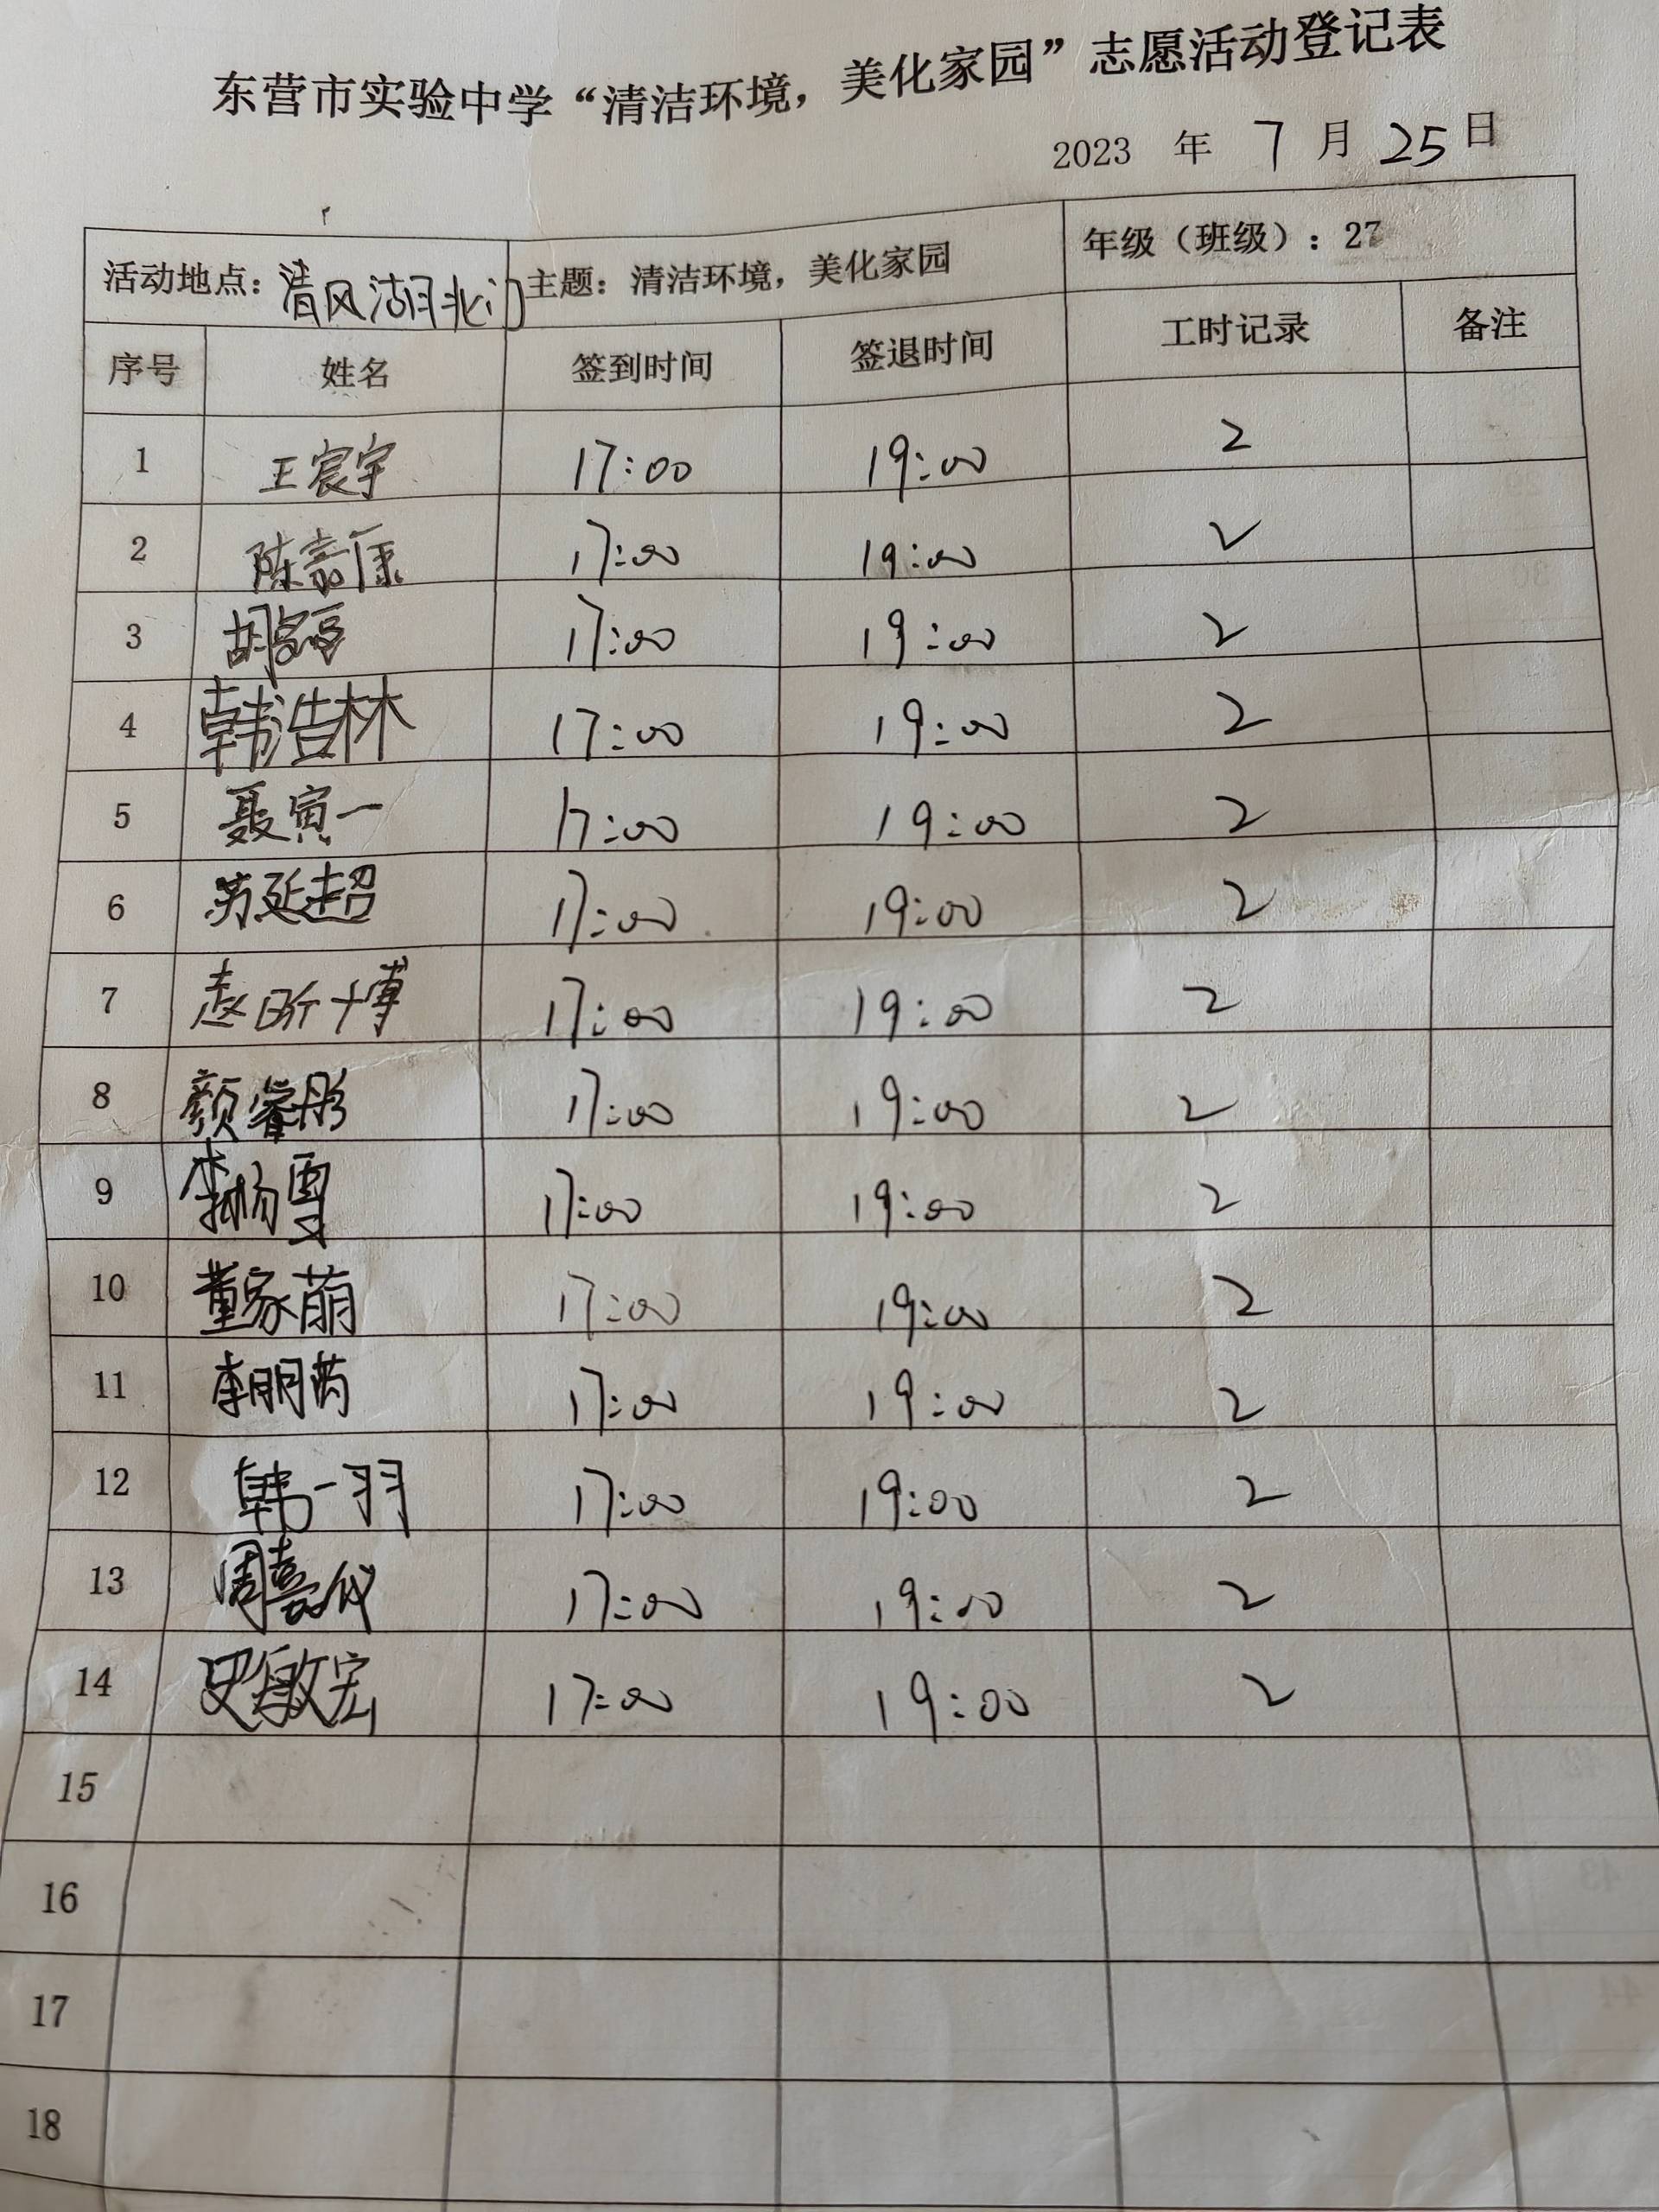 东营市实验中学“清洁环境，美化家园”志愿活动登记表
2023 年 7 月 25 日
活动地点：清风湖北门 主题：清洁环境，美化家园 年级（班级）：27
序号 姓名 签到时间 签退时间 工时记录 备注
1 王宸宇 17:00 19:00 2
2 陈嘉康 17:00 19:00 2
3 胡 17:00 19:00 2
4 韩浩林 17:00 19:00 2
5 聂寅一 17:00 19:00 2
6 苏延超 17:00 19:00 2
7 赵昕博 17:00 19:00 2
8 颜睿彤 17:00 19:00 2
9 李杨雪 17:00 19:00 2
10 董家萌 17:00 19:00 2
11 李明芮 17:00 19:00 2
12 韩一羽 17:00 19:00 2
13 周嘉仪 17:00 19:00 2
14 史敏宏 17:00 19:00 2
15
16
17
18